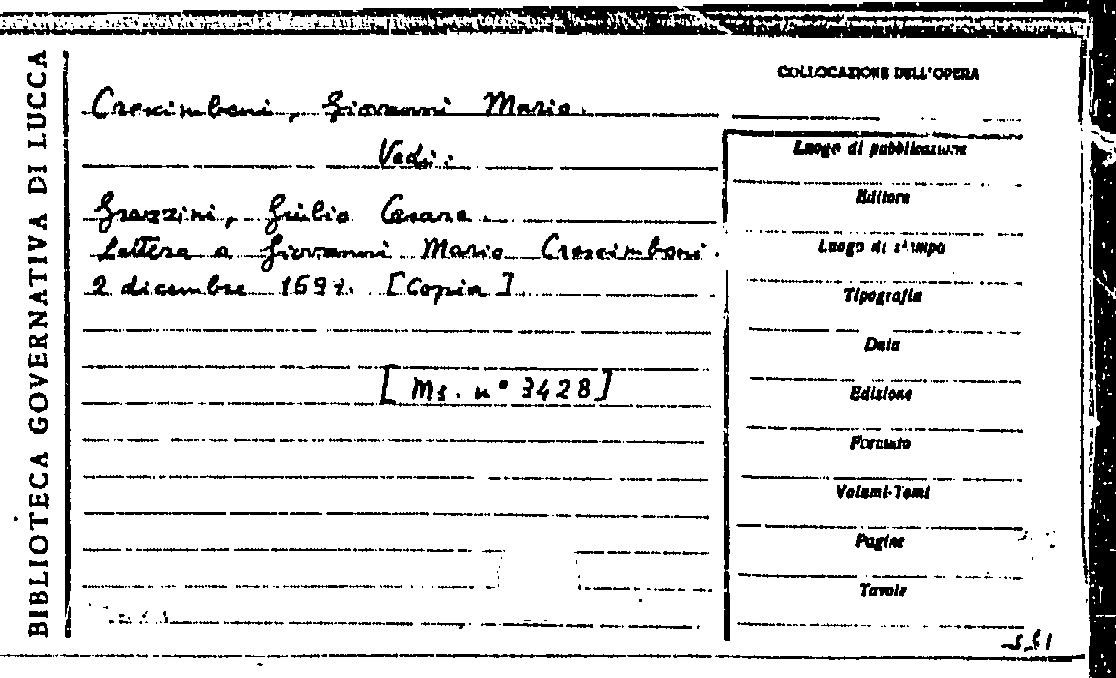 BIBLIOTECA GOVERNATIVA DI LUCCA
Crescimbeni, Giovanni Mario.
Vedi:
Grazzini, Giulio Cesare.
Lettera a Giovanni Mario Crescimbeni.
2 dicembre 1697. [Copia].
[Ms. n° 3428]
COLLOCAZIONE DELL'OPERA
Luogo di pubblicazione
Editore
Luogo di stampa
Tipografia
Data
Edizione
Formato
Volumi-Tomi
Pagine
Tavole